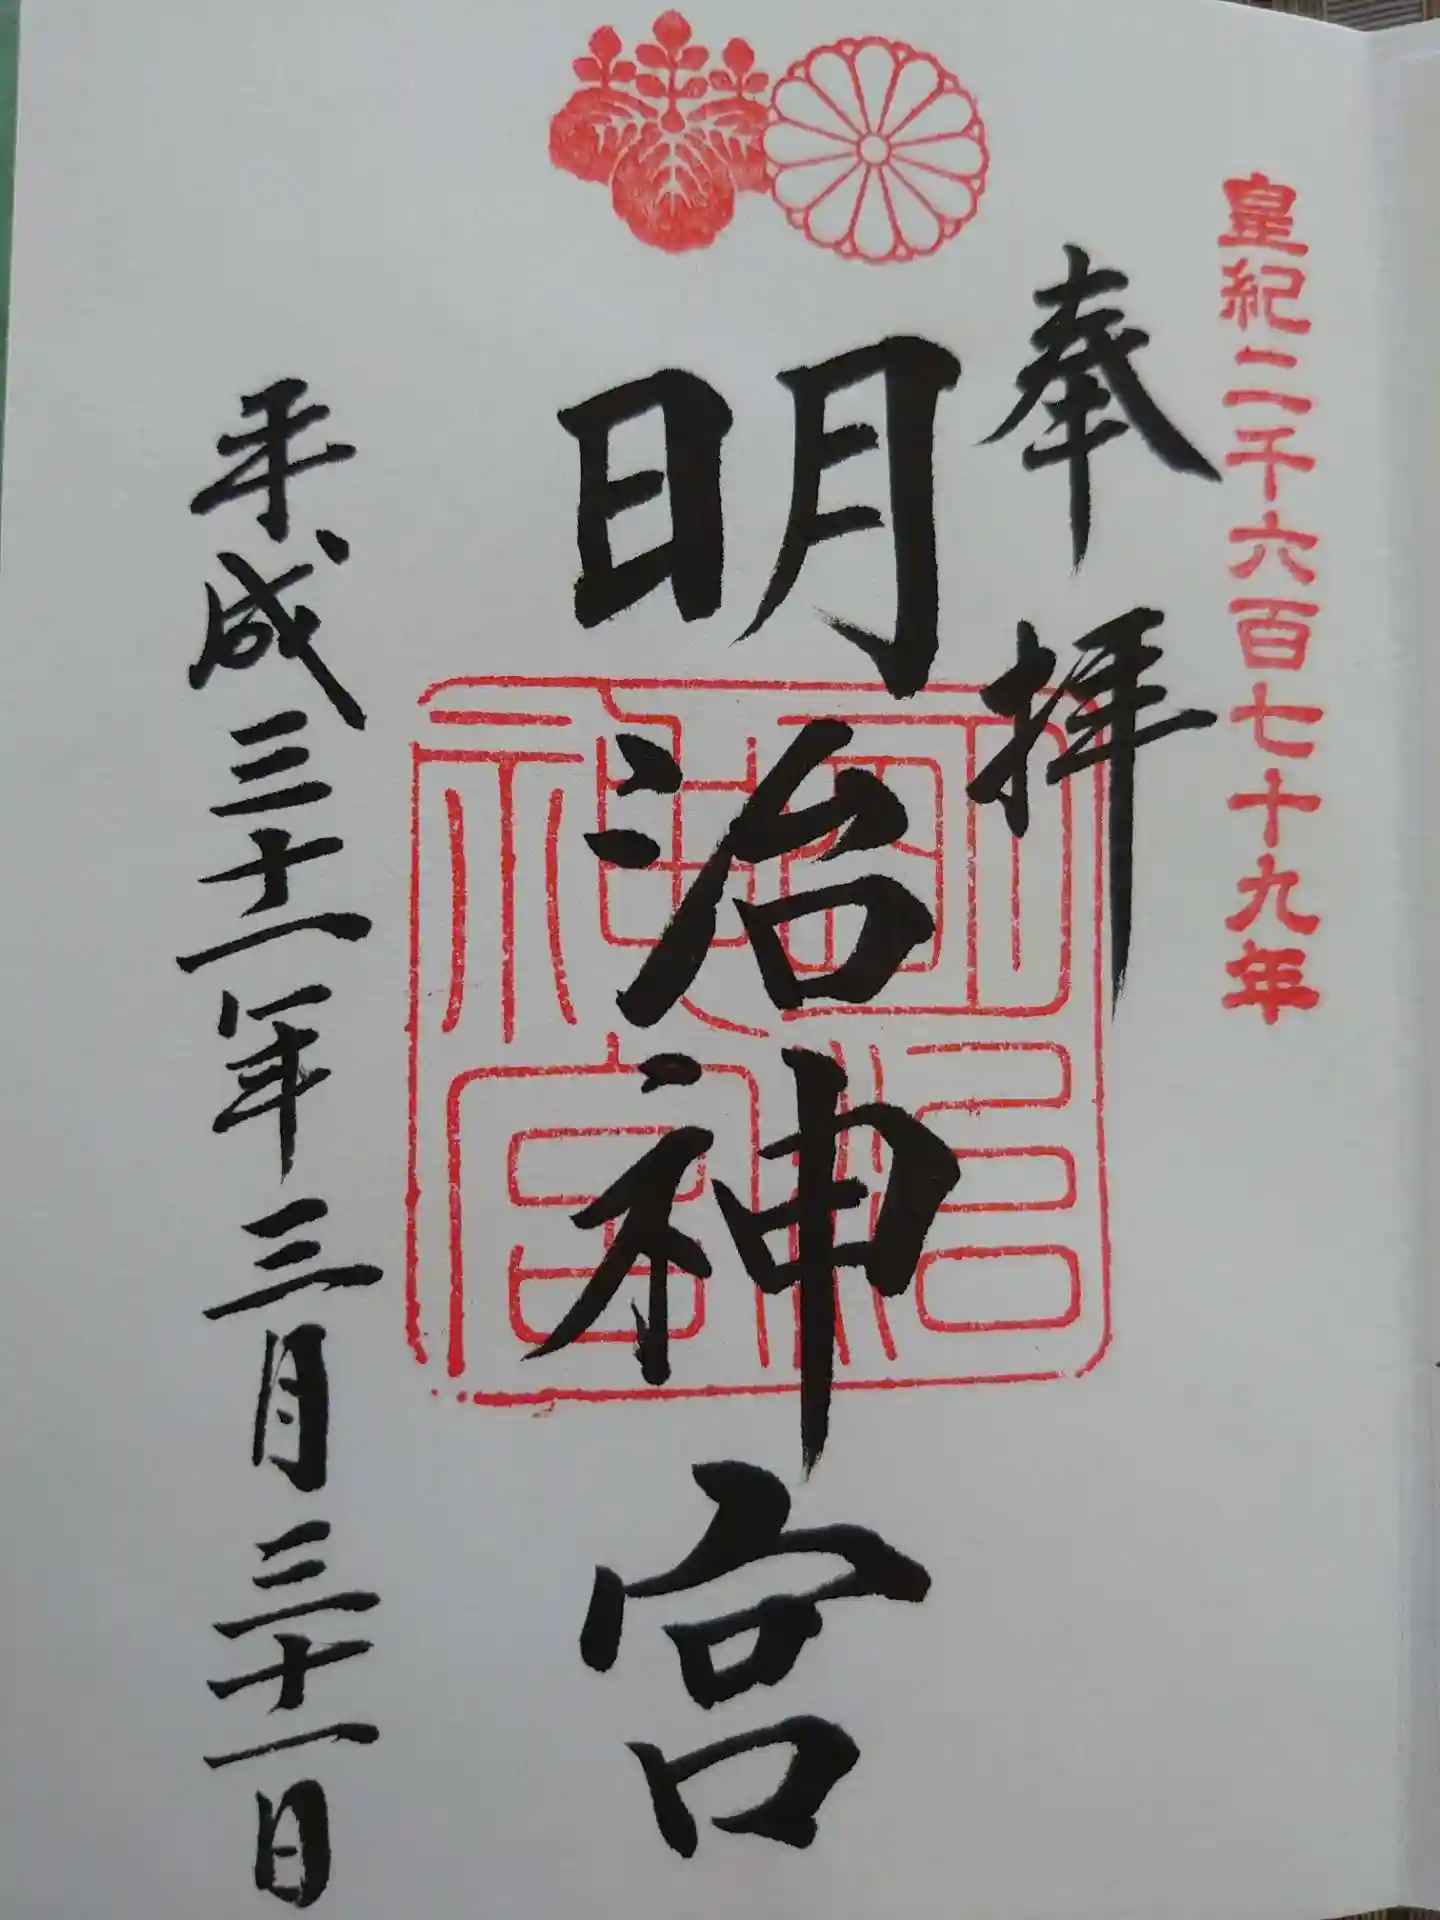 皇紀二千六百七十九年
奉拝
明治神宮
明治神宮
平成三十一年三月三十一日